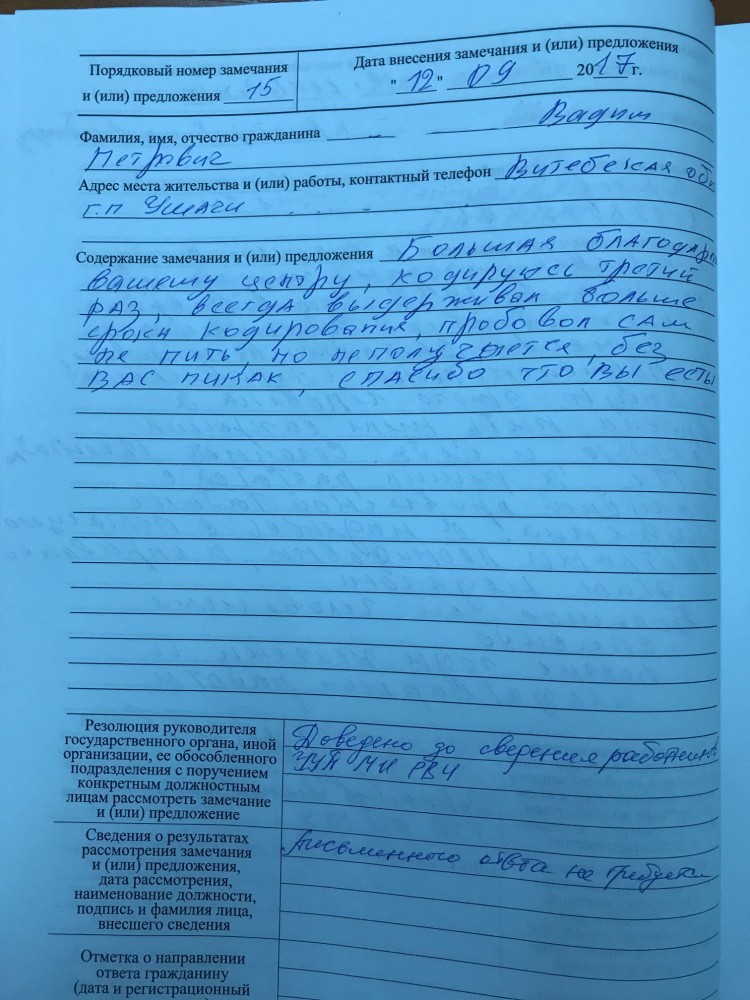 Порядковый номер замечания
и (или) предложения 15
Дата внесения замечания и (или) предложения
"12" 09 2017 г.
Фамилия, имя, отчество гражданина Вадим
Петрович
Адрес места жительства и (или) работы, контактный телефон Витебская обл
г.п Ушачи
Содержание замечания и (или) предложения Большая благодарн
вашему центру, кодируюсь третий
раз, всегда выдерживал больше
срока кодирования, пробовал сам
не пить, но неполучается, без
вас никак, спасибо что вы есть
Резолюция руководителя
государственного органа, иной
организации, ее обособленного
подразделения с поручением
конкретным должностным
лицам рассмотреть замечание
и (или) предложение
Доведено до сведения работников
Сведения о результатах
рассмотрения замечания
и (или) предложения,
дата рассмотрения,
наименование должности,
подпись и фамилия лица,
внесшего сведения
Письменного ответа не требуется
Отметка о направлении
ответа гражданину
(дата и регистрационный